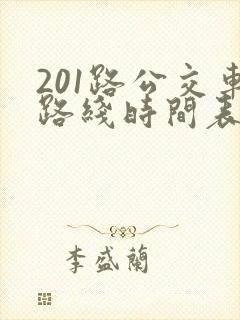 201路公交車
路綫時間表
李盛蘭